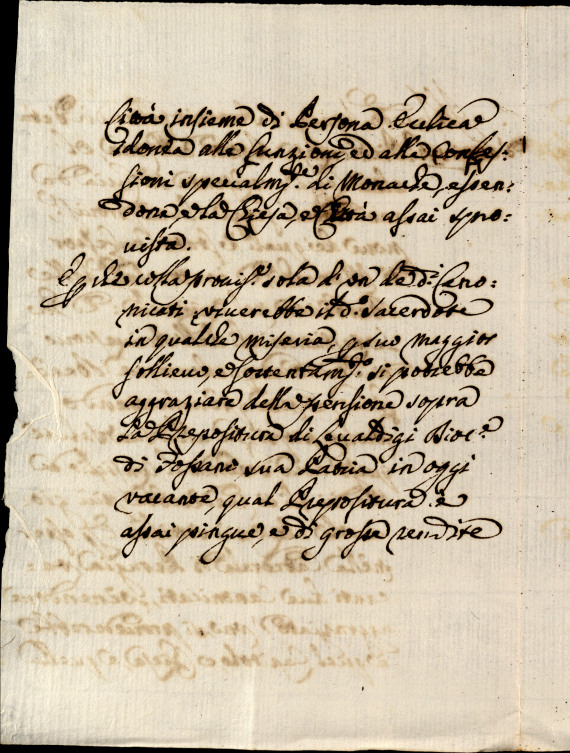 Città insieme di Persona Eutica
idonea alle funzioni, ed alle Confes=
sioni specialm.te di Monache, essen=
done, e la Chiesa, e Città assai spro=
vista.
E p. che colla provis.e sola d'un de d.i Cano=
nicati viverebbe il d.o Sacerdote
in qualche miseria, p suo maggior
sollievo, e sostentam.to si potrebbe
aggraziare della pensione sopra
la Prepositura di Levaldigi Dioc.e
di Fossano sua Patria in oggi
vacante, qual Prepositura è
assai pingue, e di grosse rendite